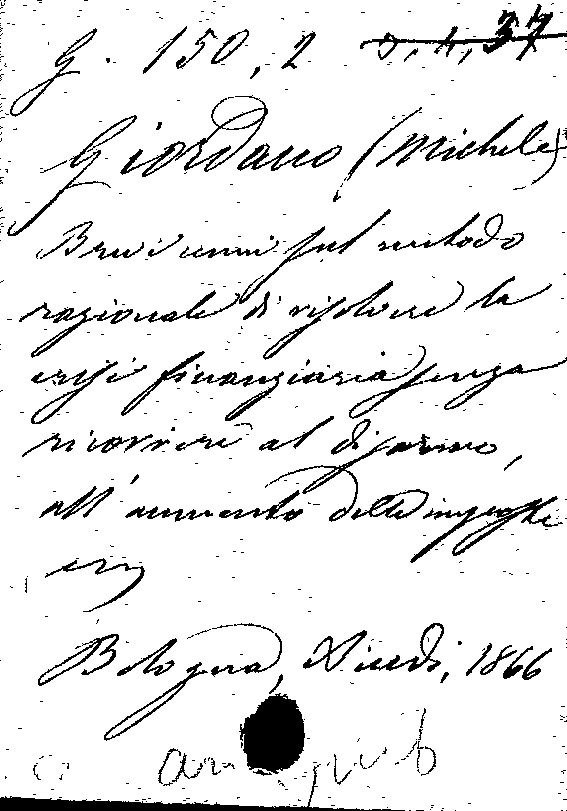 G. 150, 2 5, 4, 37
Giordano (Michele)
Brevi cenni sul metodo
razionale di risolvere la
crisi finanziaria senza
ricorrere al disarmo,
all'aumento delle imposte
ecc
Bologna, 1866